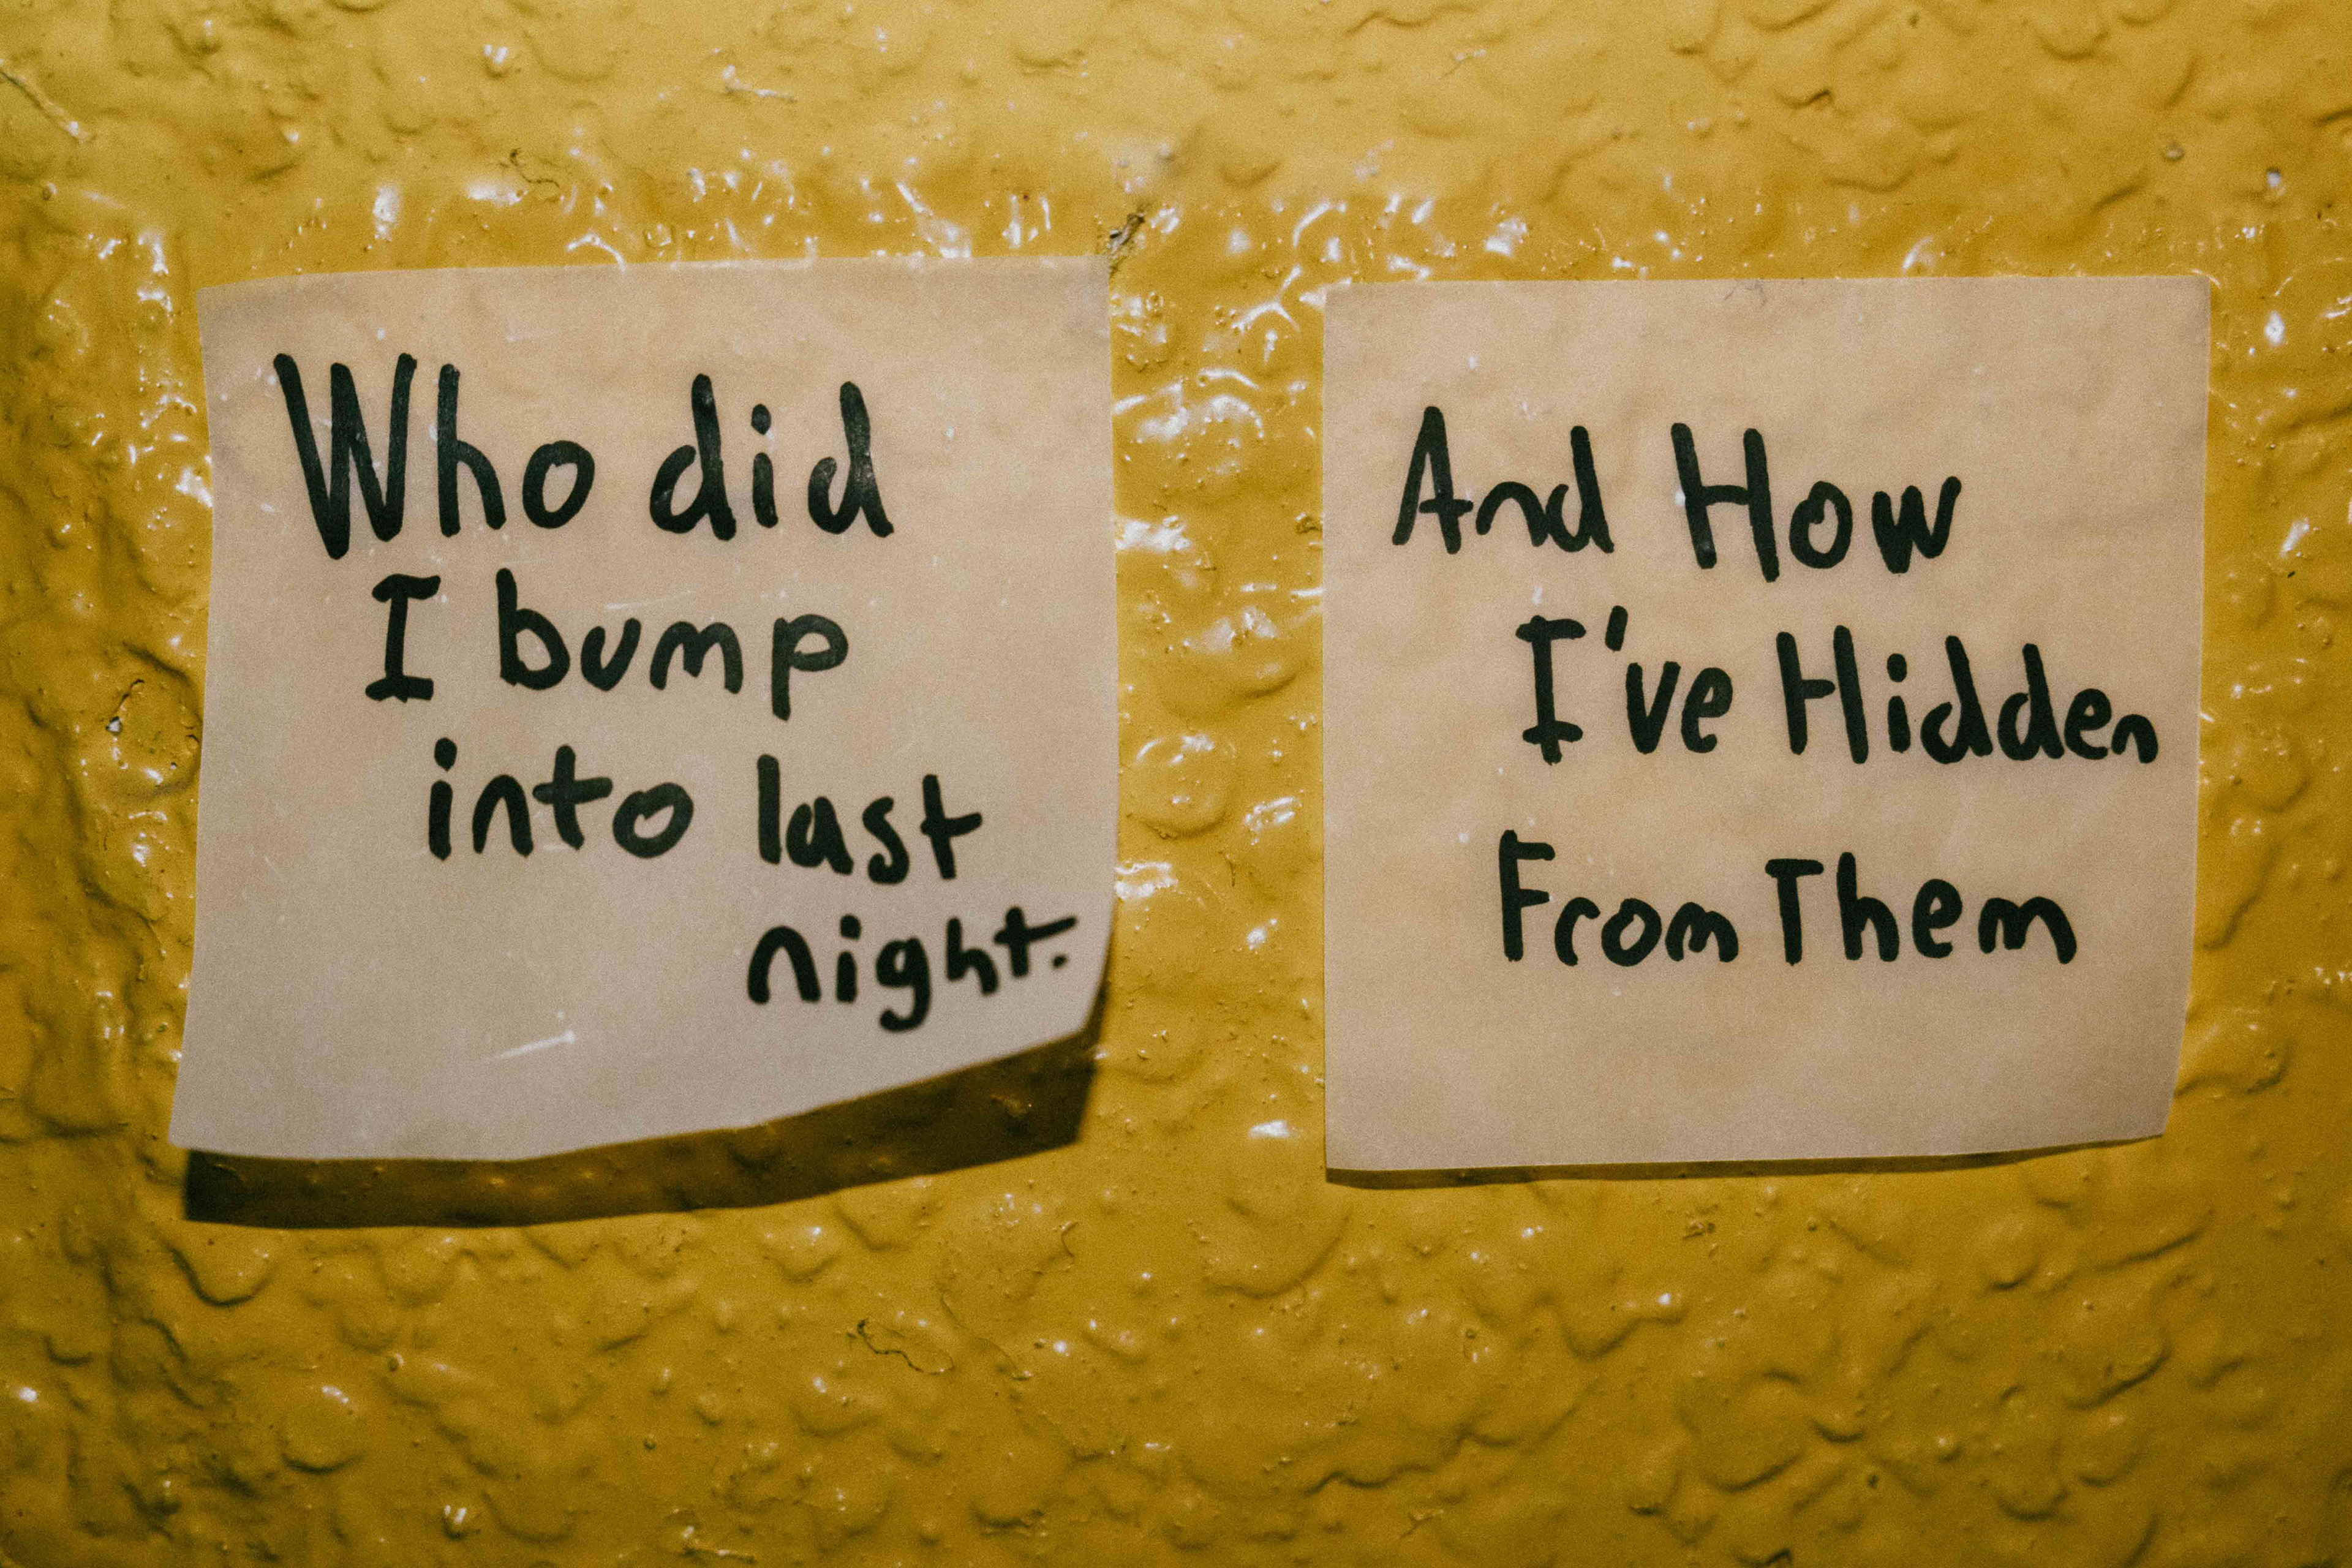 Who did
I bump
into last
night.
And How
I've Hidden
From Them